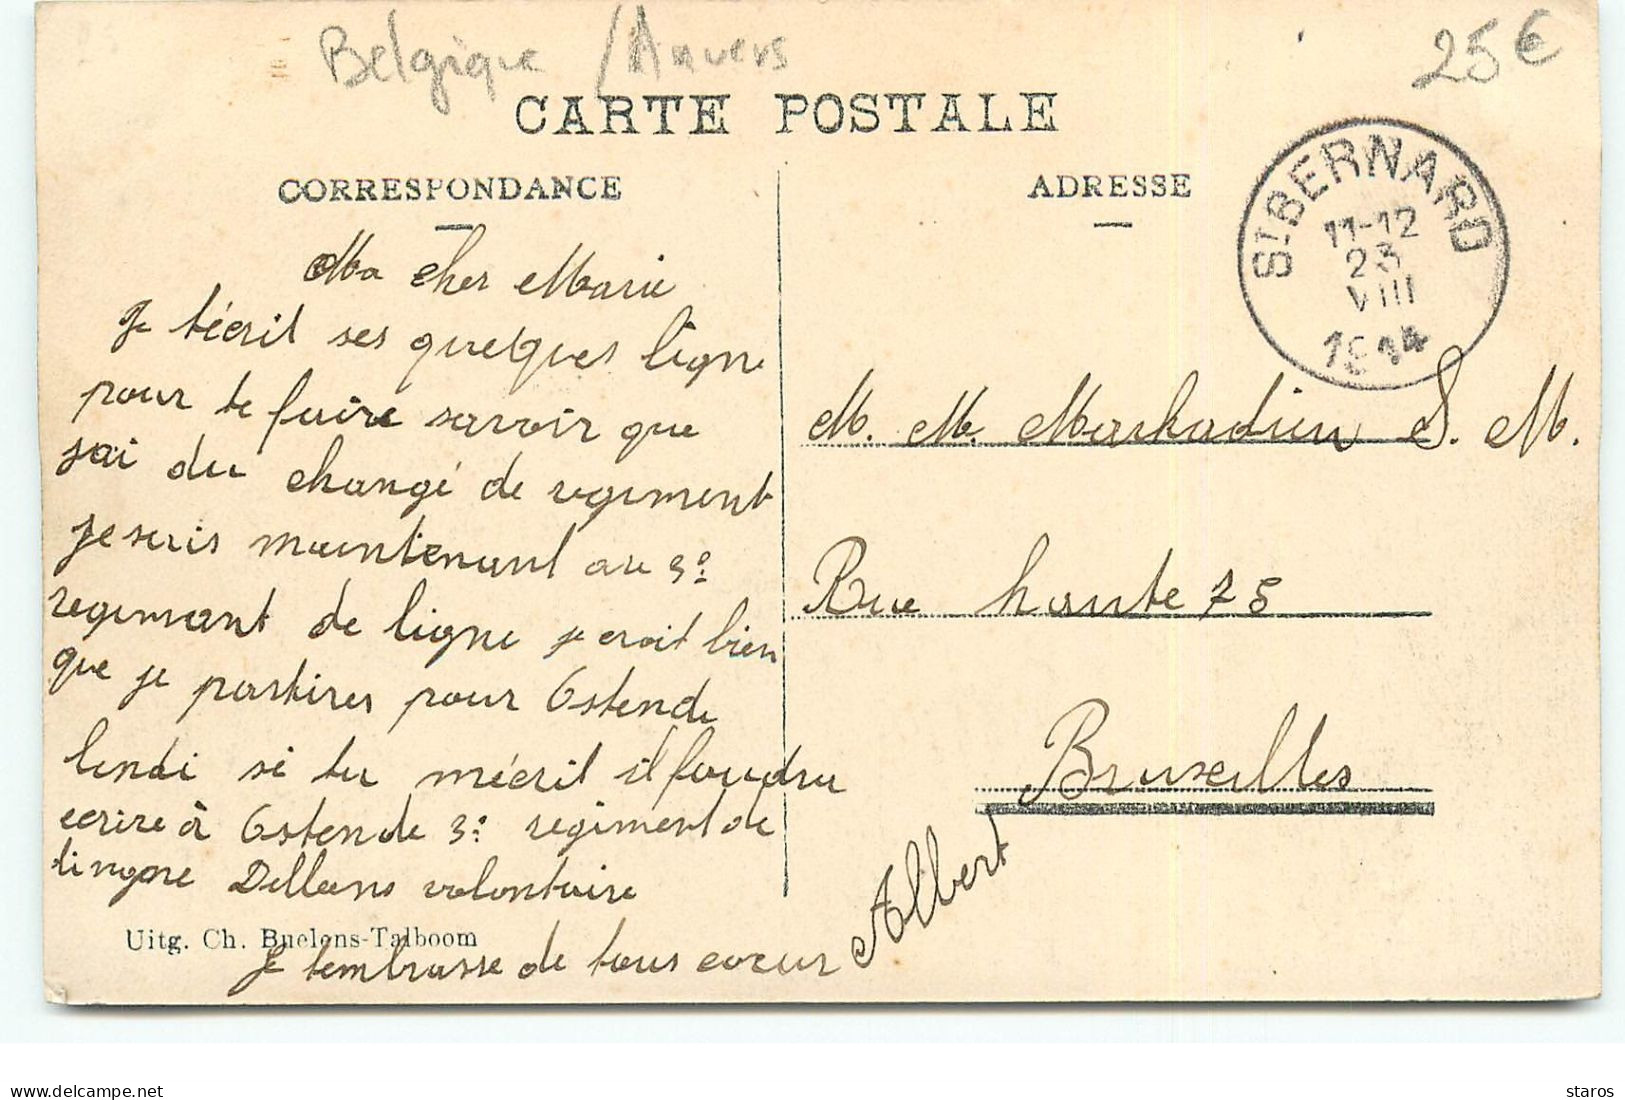 Belgique / Anvers
25€
CARTE POSTALE
CORRESPONDANCE
ADRESSE
ST BERNARD
11-12
23
VIII
1914
Ma cher Marie
Je t'écrit ses quelques ligne
pour te faire savoir que
jai du changé de regiment
je suis maintenant au 3e
regimant de ligne je croit bien
que je partires pour Ostende
lundi si tu mécrit il faudra
ecrire à Ostende 3e regiment de
lingne Dellaens volontaire
Je tembrasse de tous coeur
Albert
M. M. Markadieu S. M.
Rue haute 75
Bruxelles
Uitg. Ch. Buelens-Talboom
delcampe.net
staros